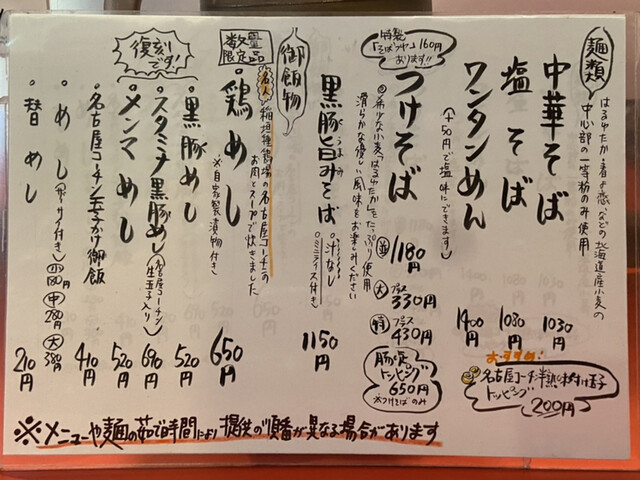 麺類
はるゆたか・春よ恋などの北海道産小麦の
中心部の一等粉のみ使用
中華そば 1030円
塩そば 1030円
ワンタンめん 1400円
(+50円で塩味にできます)
おすすめ!
名古屋コーチン半熟味付け玉子
トッピング 200円
特製
「そばつゆ」160円
あります!!
つけそば
希少な小麦「はるゆたか」をたっぷり使用
滑らかな優しい風味をお楽しみください
並 1180円
大 プラス 330円
特 プラス 430円
トッピング
650円
※つけそばのみ
黒豚旨みそば
汁なし
(ミニライス付き)
1150円
御飯物
数量
限定品
名人
稲垣種鶏場の名古屋コーチンの
お肉とスープで炊きました
鶏めし 650円
※自家製漬物付き
黒豚めし 520円
復刻
です!
スタミナ黒豚めし 690円
(名古屋コーチン
生玉子入り)
メンマめし 520円
名古屋コーチン玉子かけ御飯 410円
めし
替めし 210円
※メニューや麺の茹で時間により提供の順番が異なる場合があります